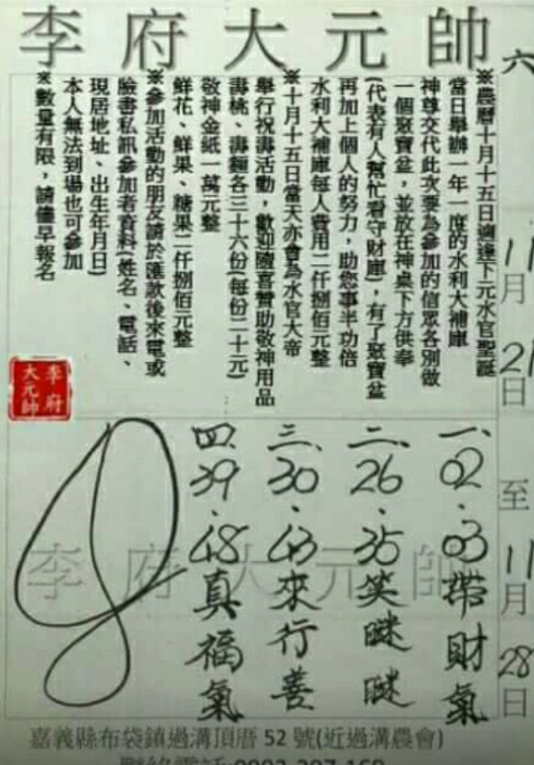 李府大元帥
六
11月21日至11月28日
※農曆十月十五日適逢下元水官聖誕
當日舉辦一年一度的水利大補庫
神尊交代此次要為參加的信眾各別做
一個聚寶盆，並放在神桌下方供奉
(代表有人幫忙看守財庫)，有了聚寶盆
再加上個人的努力，助您事半功倍
水利大補庫每人費用二仟捌佰元整
※十月十五日當天亦會為水官大帝
舉行祝壽活動，歡迎隨喜贊助敬神用品
壽桃、壽麵各三十六份(每份二十元)
敬神金紙一萬元整
鮮花、鮮果、糖果二仟捌佰元整
※參加活動的朋友請於匯款後來電或
臉書私訊參加者資料(姓名、電話、
現居地址、出生年月日)
本人無法到場也可參加
※數量有限，請儘早報名
李府
大元帥
一、02.03帶財氣
二、26.35笑瞇瞇
三、30.43來行善
四、39.48真福氣
李府大元帥
嘉義縣布袋鎮過溝頂厝 52 號(近過溝農會)